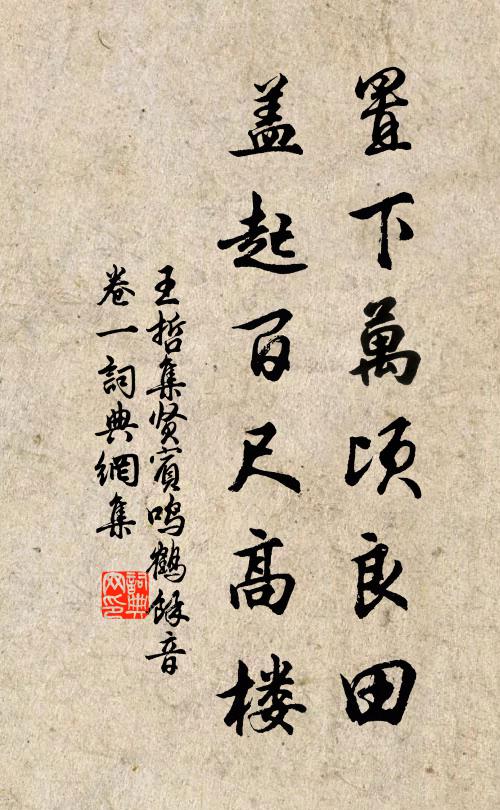 置下萬頃良田
盖起百尺高楼
王哲集贤賓鸣鶴餘音
卷一詞典網集
詞典网印